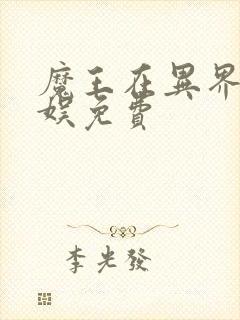 魔王在異界
娛免費
李光發